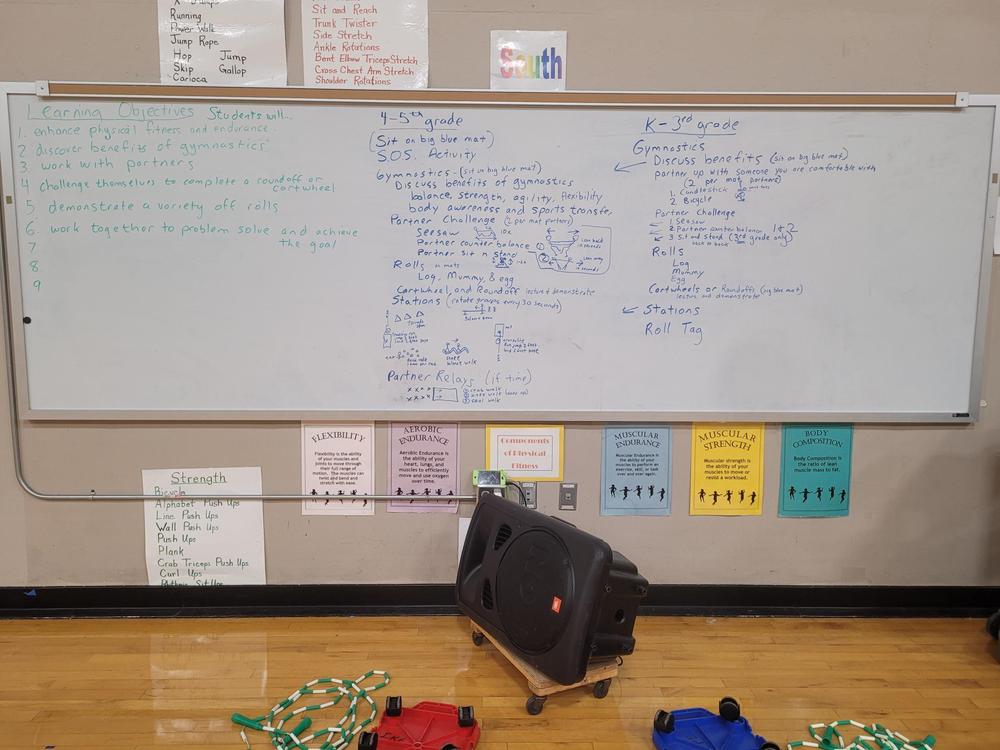 Running
Power Walk
Jump Rope
Hop Jump
Skip Gallop
Carioca
Sit and Reach
Trunk Twister
Side Stretch
Ankle Rotations
Bent Elbow Triceps Stretch
Cross Chest Arm Stretch
Shoulder Rotations
South
Learning Objectives Students will...
1. enhance physical fitness and endurance.
2 discover benefits of gymnastics
3. work with partners
4 challenge themselves to complete a roundoff or
cartwheel
5 demonstrate a variety off rolls
6. work together to problem solve and achieve
the goal
7
8.
9
4-5th grade
(Sit on big blue mat)
S.O.S. Activity
Gymnastics - (sit on big blue mat)
Discuss benefits of gymnastics
balance, strength, agility, flexibility
body awareness and sports transfer
Partner Challenge (2 per mat partners)
Seesaw 10x
Partner counter balance
Partner sit n stand
Rolls on mats
Log, Mummy, & egg
Cartwheel and Roundoff lecture & demonstrate
Stations (rotate groups every 30 seconds)
Partner Relays (if time)
① crab walk
② seal walk
K-3rd grade
Gymnastics
Discuss benefits (sit on big blue mat)
partner up with someone you are comfortable with
(2 per mat partners)
1. Candlestick
2. Bicycle
Partner Challenge
1 Seesaw
2 Partner counter balance 1&2
3 Sit and stand (3rd grade only)
back to back
Rolls
Log
Mummy
Egg
Cartwheels or Roundoffs (big blue mat)
lecture and demonstrate
Stations
Roll Tag
Strength
Bicycle
Alphabet Push Ups
Line Push Ups
Wall Push Ups
Push Ups
Plank
Crab Triceps Push Ups
Curl Ups
FLEXIBILITY
Flexibility is the ability
of your muscles and
joints to move through
their full range of
motion. The muscles can
twist and bend and
stretch with ease.
AEROBIC
ENDURANCE
Aerobic Endurance is
the ability of your
heart, lungs, and
muscles to efficiently
move and use oxygen
over time.
Components
of Physical
Fitness
MUSCULAR
ENDURANCE
Muscular Endurance is
the ability of your
muscles to perform an
exercise, skill, or task
over and over again.
MUSCULAR
STRENGTH
Muscular strength is
the ability of your
muscles to move or
resist a workload.
BODY
COMPOSITION
Body Composition is
the ratio of lean
muscle mass to fat.
JBL